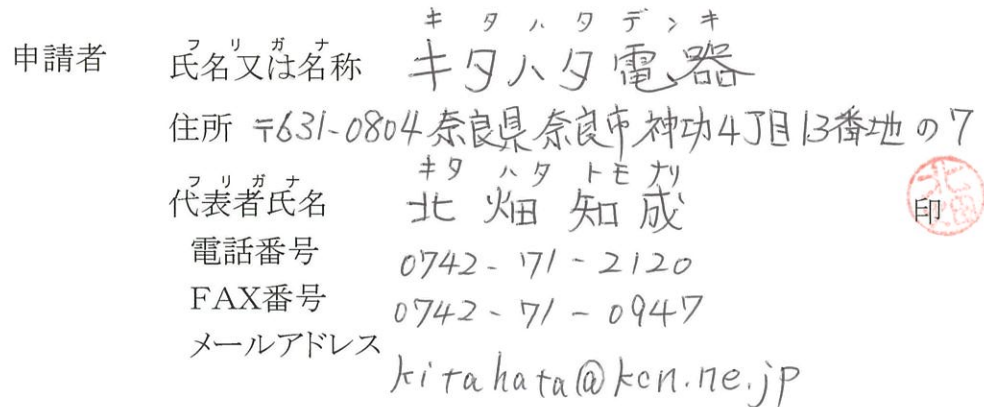 キタハタデンキ
申請者 フリガナ 氏名又は名称 キタハタ電器
住所 〒631-0804 奈良県奈良市神功4丁目13番地の7
フリガナ キタ ハタ トモナリ
代表者氏名 北畑 知成 印 北畑
電話番号 0742-71-2120
FAX番号 0742-71-0947
メールアドレス kitahata@kcn.ne.jp